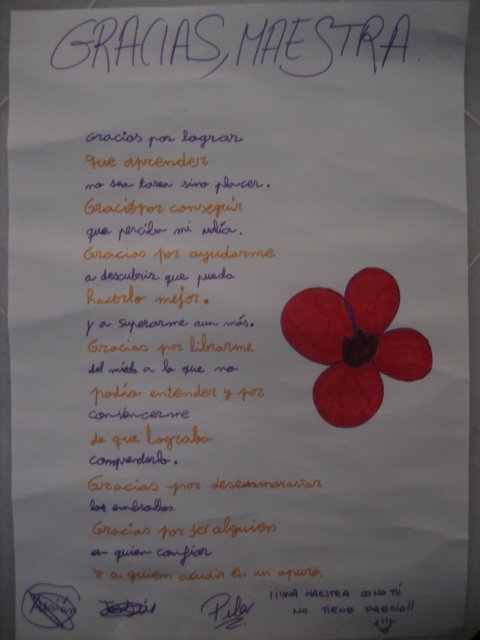 GRACIAS, MAESTRA.
Gracias por lograr
que aprender
no sea tarea sino placer.
Gracias por conseguir
que perciba mi valía.
Gracias por ayudarme
a descubrir que puedo
hacerlo mejor.
y a superarme aun más.
Gracias por librarme
del miedo a lo que no
podía entender y por
convencerme
de que lograba
comprenderlo.
Gracias por desenmarañar
los embrollos.
Gracias por ser alguien
en quien confiar
y a quien acudir en un apuro.
Adrián Jesús Pilar
¡¡UNA MAESTRA COMO TÚ
NO TIENE PRECIO!!